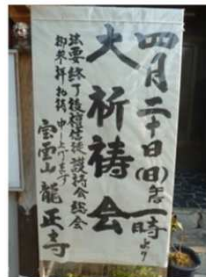 四月二十日(日)午后一時より
大祈祷会
法要終了後檀信徒護持会総会
御参拝お待ち申し上げます
宝雲山 龍正寺